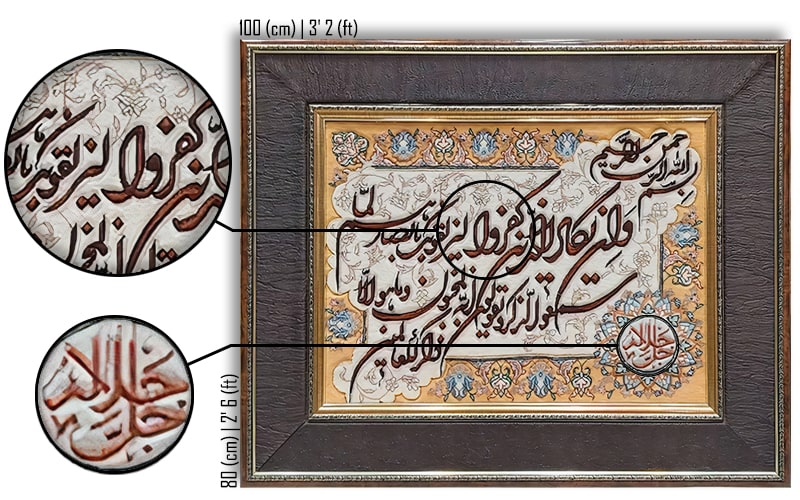 100 (cm) | 3' 2 (ft)
80 (cm) | 2' 6 (ft)
بسم الله الرحمن الرحیم
وان یکاد الذین کفروا لیزلقونک بابصارهم لما
سمعوا الذکر و یقولون انه لمجنون وما هو الا
ذکر للعالمین
جل جلاله